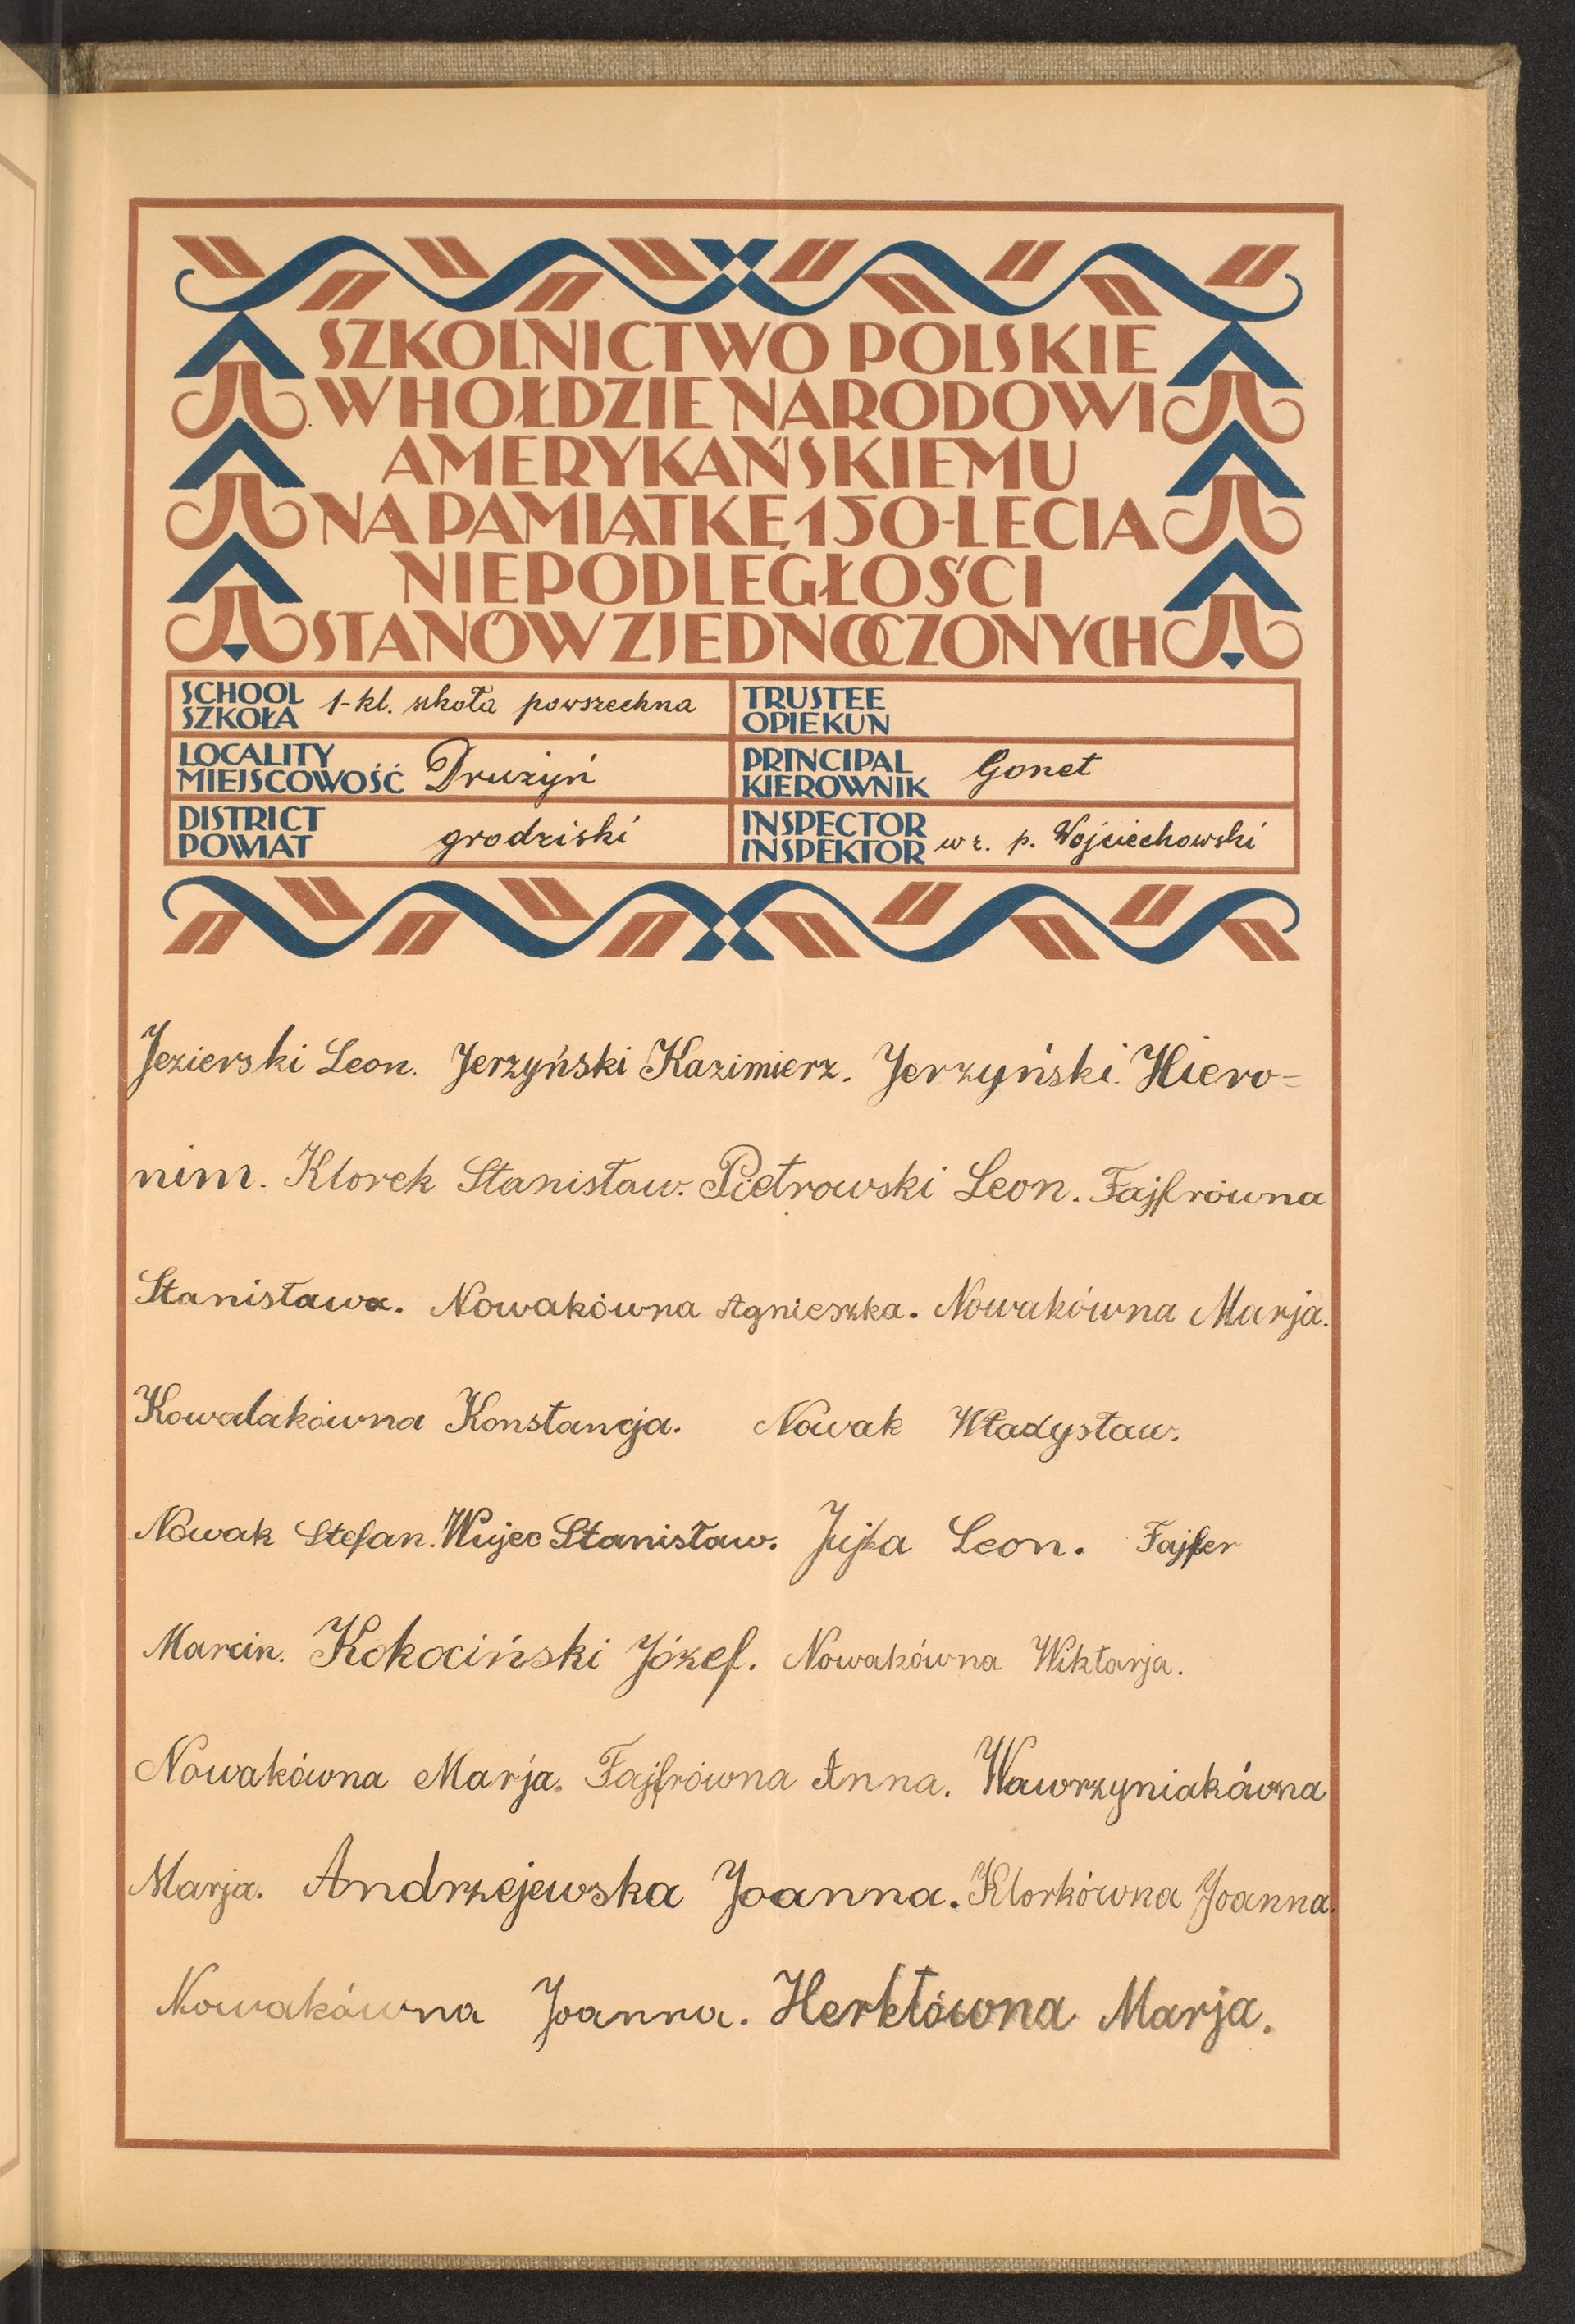 SZKOLNICTWO POLSKIE
W HOŁDZIE NARODOWI
AMERYKAŃSKIEMU
NA PAMIĄTKĘ 150-LECIA
NIEPODLEGŁOŚCI
STANÓW ZJEDNOCZONYCH
SCHOOL SZKOŁA 1-kl. szkoła powszechna
TRUSTEE OPIEKUN
LOCALITY MIEJSCOWOŚĆ Drużyń
PRINCIPAL KIEROWNIK Gonet
DISTRICT POWIAT grodziski
INSPECTOR INSPEKTOR w z. p. Wojciechowski
Jezierski Leon. Jerzyński Kazimierz. Jerzyński Hiero=
nim. Klorek Stanisław. Pietrowski Leon. Fajfrówna
Stanisława. Nowakówna Agnieszka. Nowakówna Marja.
Kowalakówna Konstancja. Nowak Władysław.
Nowak Stefan. Wujec Stanisław. Leon. Fajfer
Marcin. Kokociński Józef. Nowakówna Wiktorja.
Nowakówna Marja. Fajfrówna Anna. Wawrzyniakówna
Marja. Andrzejewska Joanna. Klorkówna Joanna.
Nowakówna Joanna. Herktówna Marja.